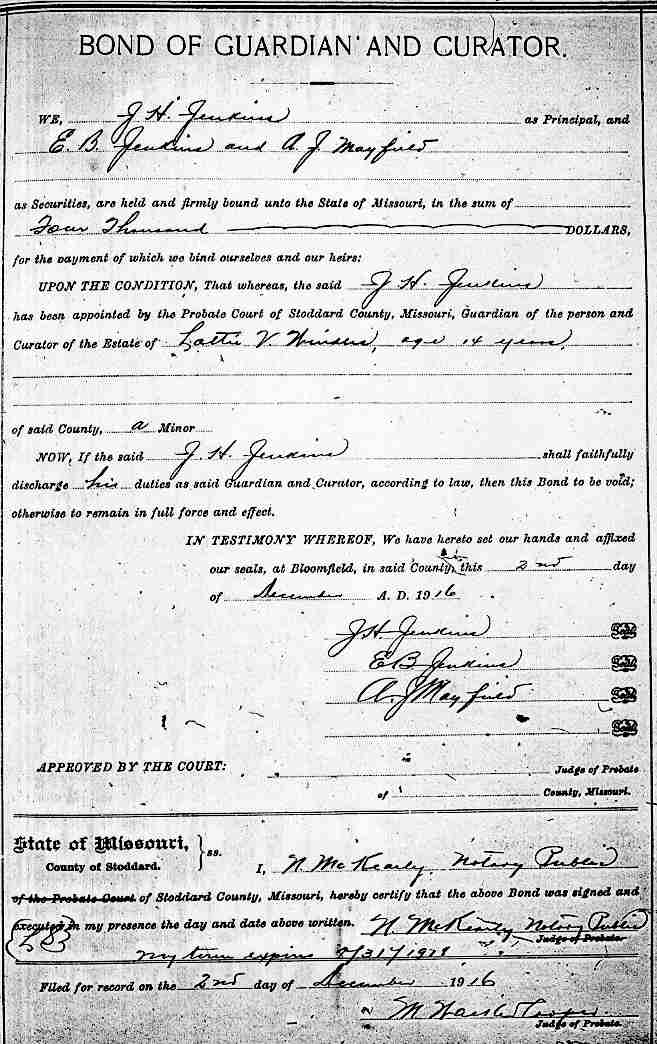 BOND OF GUARDIAN AND CURATOR.
WE, J H. Jenkins as Principal, and
E. B. Jenkins and A. J Mayfield
as Securities, are held and firmly bound unto the State of Missouri, in the sum of
Four Thousand DOLLARS,
for the payment of which we bind ourselves and our heirs:
UPON THE CONDITION, That whereas, the said J H. Jenkins
has been appointed by the Probate Court of Stoddard County, Missouri, Guardian of the person and
Curator of the Estate of Lottie V. Winders, age 14 years,
of said County, a Minor
NOW, If the said J. H. Jenkins shall faithfully
discharge his duties as said Guardian and Curator, according to law, then this Bond to be void;
otherwise to remain in full force and effect.
IN TESTIMONY WHEREOF, We have hereto set our hands and affixed
our seals, at Bloomfield, in said County, this 2nd day
of December A. D. 1916
J H. Jenkins Seal
E B Jenkins Seal
A. J Mayfield Seal
Seal
APPROVED BY THE COURT: Judge of Probate
of County, Missouri.
State of Missouri, } ss.
County of Stoddard. I, N. McKearly, Notary Public
of the Probate Court of Stoddard County, Missouri, hereby certify that the above Bond was signed and
executed in my presence the day and date above written. N. McKearly Notary Public
(LS) Judge of Probate.
my term expires
Filed for record on the 2nd day of December 1916
M Cooper
Judge of Probate.